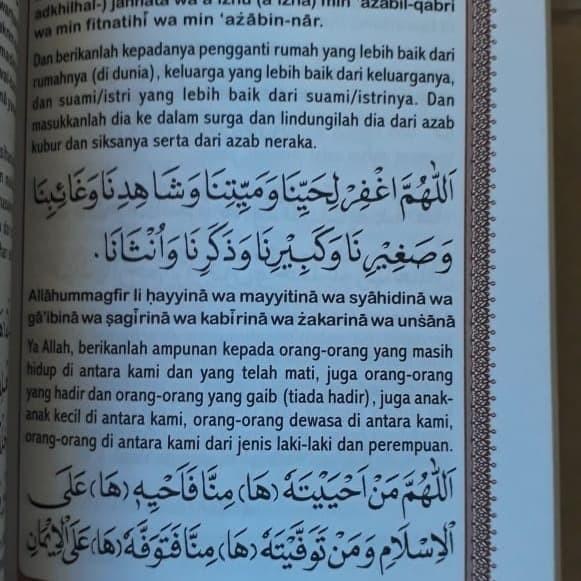 adkhilhal-) jannata wa a'iżhu (a'iżhā) min 'ażābil-qabri
wa min fitnatihī wa min 'ażābin-nār.
Dan berikanlah kepadanya pengganti rumah yang lebih baik dari
rumahnya (di dunia), keluarga yang lebih baik dari keluarganya,
dan suami/istri yang lebih baik dari suami/istrinya. Dan
masukkanlah dia ke dalam surga dan lindungilah dia dari azab
kubur dan siksanya serta dari azab neraka.
اَللّٰهُمَّ اغْفِرْ لِحَيِّنَا وَمَيِّتِنَا وَشَاهِدِنَا وَغَائِبِنَا
وَصَغِيْرِنَا وَكَبِيْرِنَا وَذَكَرِنَا وَاُنْثَانَا.
Allāhummagfir li ḥayyinā wa mayyitinā wa syāhidinā wa
gā'ibinā wa ṣagīrinā wa kabīrinā wa żakarinā wa unṡānā
Ya Allah, berikanlah ampunan kepada orang-orang yang masih
hidup di antara kami dan yang telah mati, juga orang-orang
yang hadir dan orang-orang yang gaib (tiada hadir), juga anak-
anak kecil di antara kami, orang-orang dewasa di antara kami,
orang-orang di antara kami dari jenis laki-laki dan perempuan.
اَللّٰهُمَّ مَنْ اَحْيَيْتَهُ (هَا) مِنَّا فَاَحْيِهِ (هَا) عَلَى
الْاِسْلَامِ وَمَنْ تَوَفَّيْتَهُ (هَا) مِنَّا فَتَوَفَّهُ (هَا) عَلَى الْاِيْمَانِ